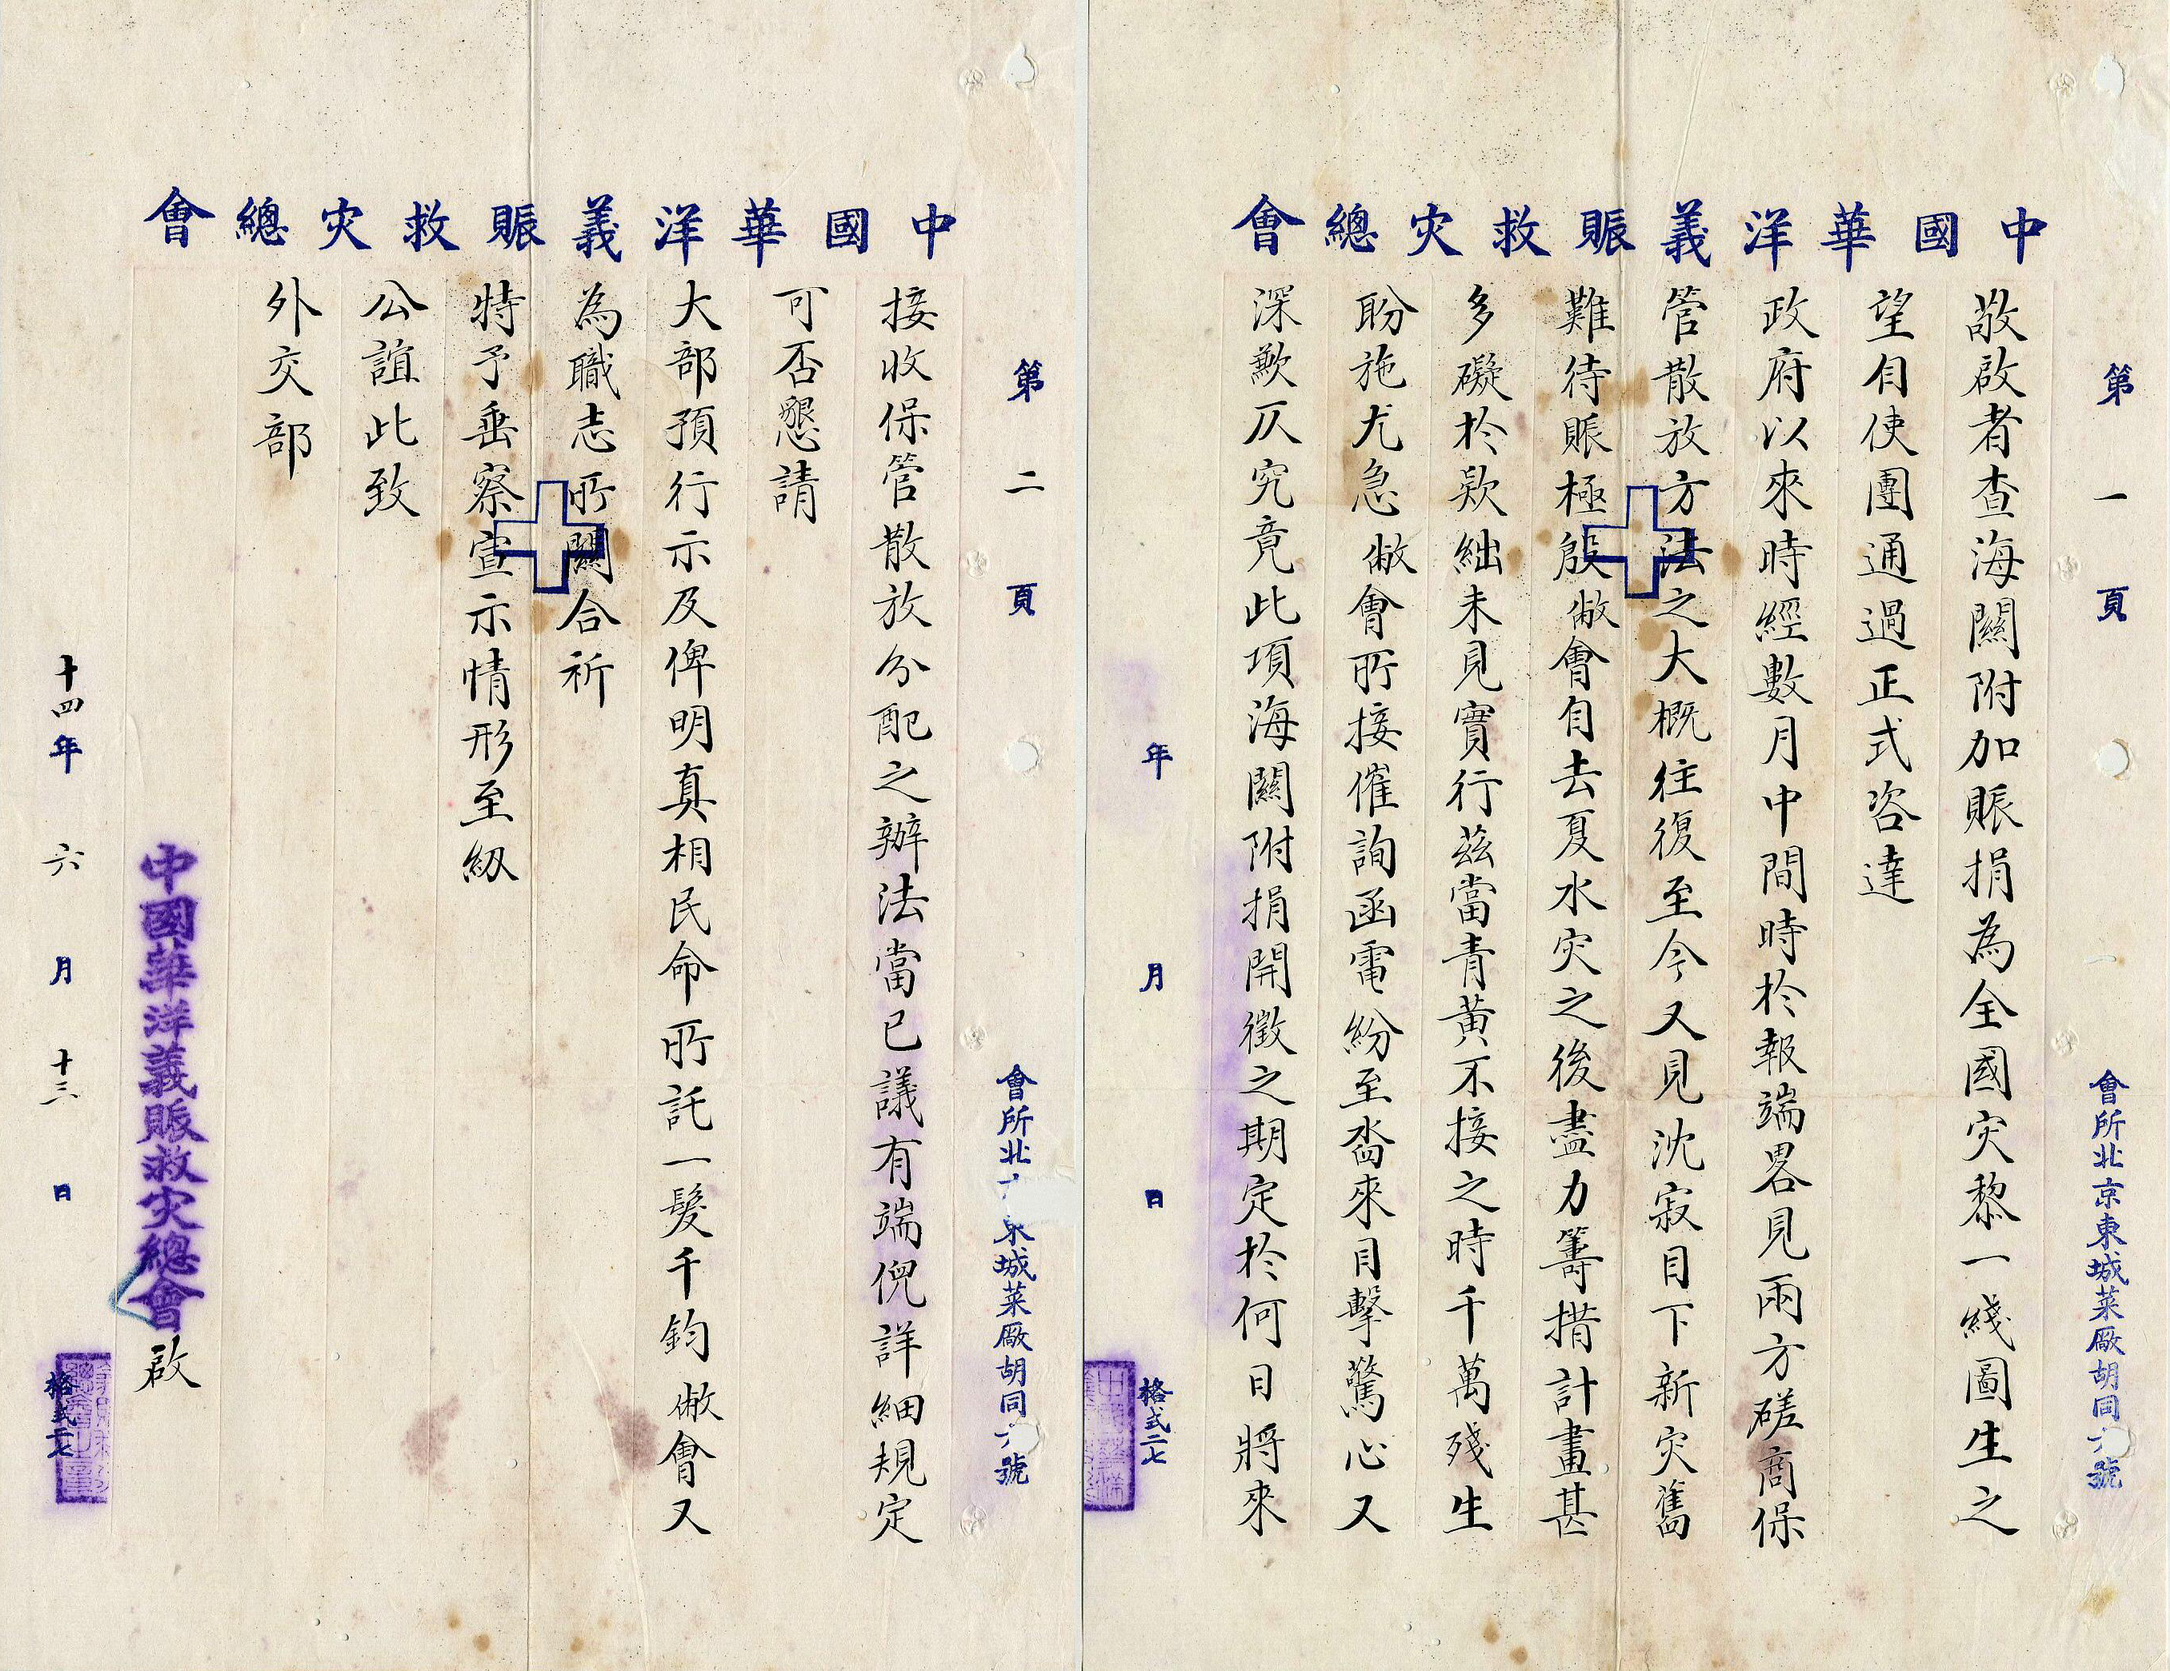 中國華洋義賑救灾總會
第一頁
會所北京東城菜廠胡同六號
敬啟者查海關附加賑捐為全國灾黎一綫圖生之
望自使團通過正式咨達
政府以來時經數月中間時於報端畧見兩方磋商保
管散放方法之大概往復至今又見沈寂目下新灾舊
難待賑極殷敝會自去夏水灾之後盡力籌措計畫甚
多礙於欵絀未見實行茲當青黃不接之時千萬殘生
盼施尤急敝會所接催詢函電紛至沓來目擊驚心又
深歉仄究竟此項海關附捐開徵之期定於何日將來
年月日
格式二七
中國華洋義賑救灾總會
第二頁
會所北東城菜廠胡同號
接收保管散放分配之辦法當已議有端倪詳細規定
可否懇請
大部預行示及俾明真相民命所託一髮千鈞敝會又
為職志所關合祈
特予垂察宣示情形至紉
公誼此致
外交部
中國華洋義賑救灾總會啟
十四年六月十三日
格式二七